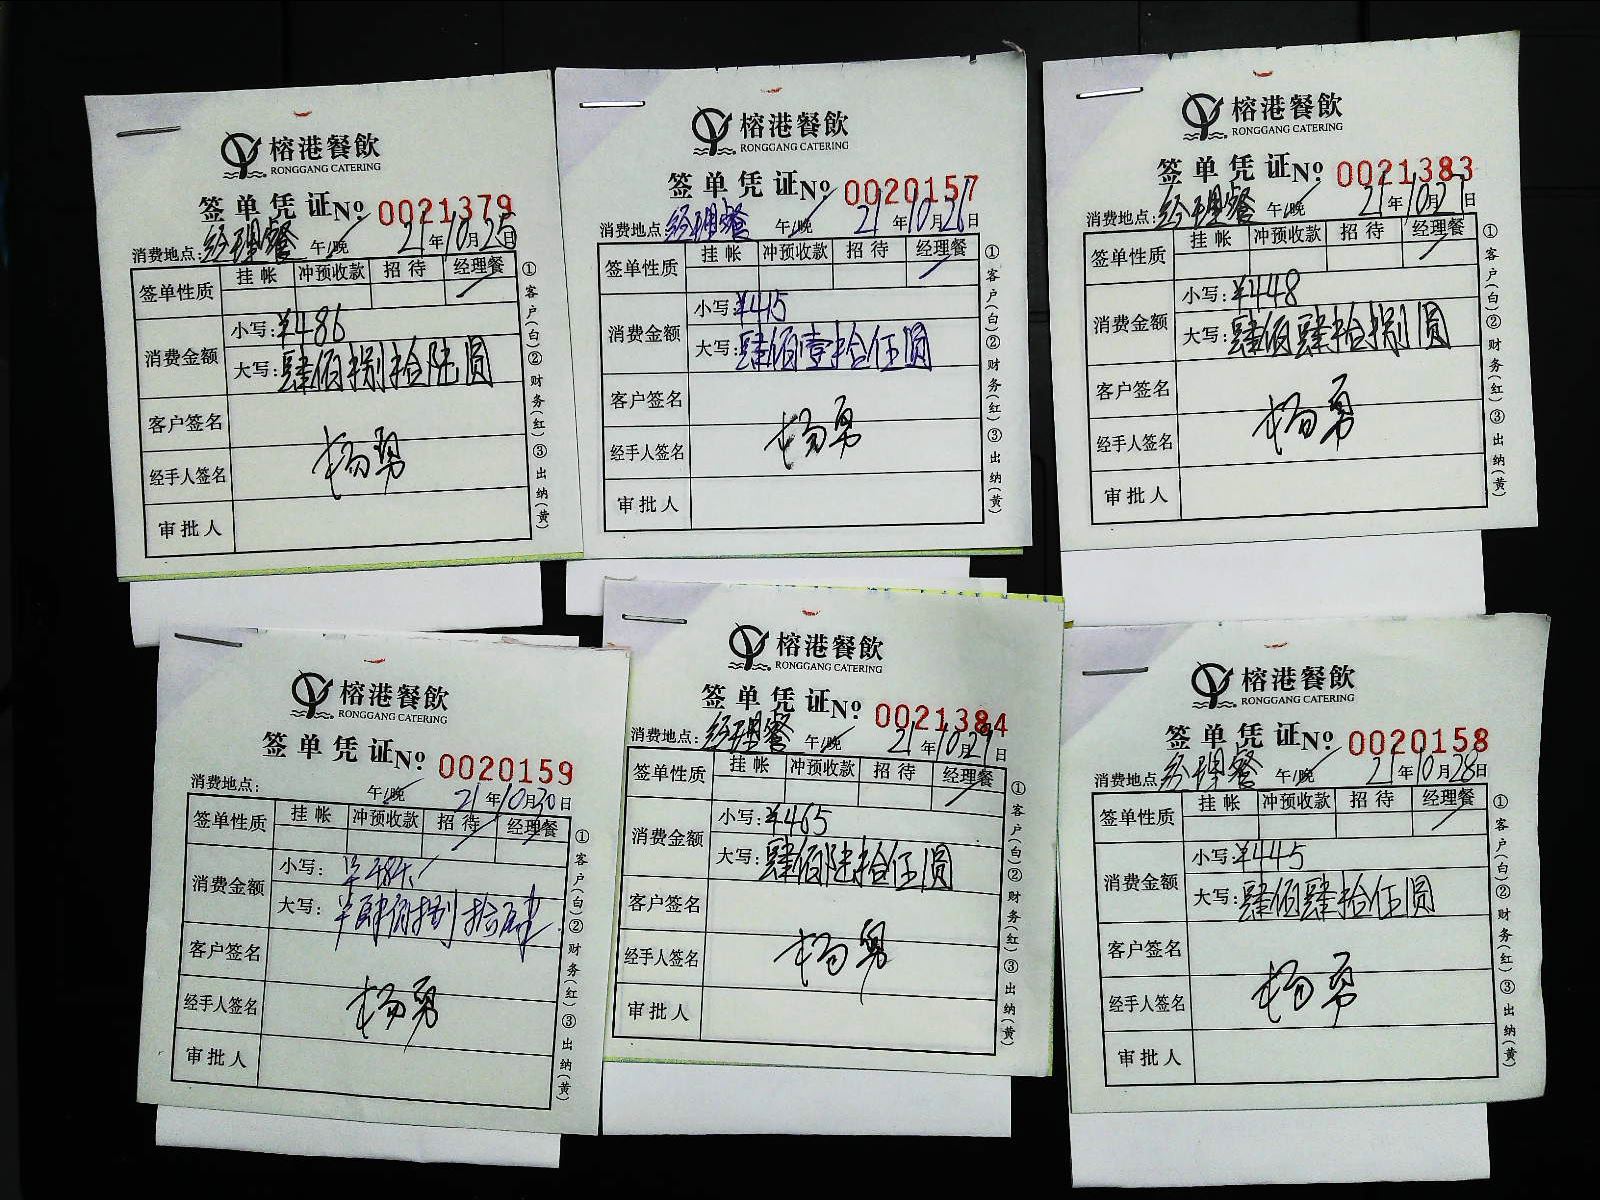 榕港餐飲
RONGGANG CATERING
签单凭证№ 0021379
消费地点:经理餐 午/晚 21年10月25日
签单性质 挂帐 冲预收款 招待 经理餐
消费金额 小写:¥486
大写:肆佰捌拾陆圆
客户签名
经手人签名 杨勇
审批人
①客户(白)②财务(红)③出纳(黄)
榕港餐飲
RONGGANG CATERING
签单凭证№ 0020157
消费地点:经理餐 午/晚 21年10月26日
签单性质 挂帐 冲预收款 招待 经理餐
消费金额 小写:¥415
大写:肆佰壹拾伍圆
客户签名
经手人签名 杨勇
审批人
①客户(白)②财务(红)③出纳(黄)
榕港餐飲
RONGGANG CATERING
签单凭证№ 0021383
消费地点:经理餐 午/晚 21年10月27日
签单性质 挂帐 冲预收款 招待 经理餐
消费金额 小写:¥448
大写:肆佰肆拾捌圆
客户签名
经手人签名 杨勇
审批人
①客户(白)②财务(红)③出纳(黄)
榕港餐飲
RONGGANG CATERING
签单凭证№ 0020159
消费地点: 午/晚 21年10月30日
签单性质 挂帐 冲预收款 招待 经理餐
消费金额 小写:¥484.
大写:¥肆佰捌拾肆
客户签名
经手人签名 杨勇
审批人
①客户(白)②财务(红)③出纳(黄)
榕港餐飲
RONGGANG CATERING
签单凭证№ 0021384
消费地点:经理餐 午/晚 21年10月29日
签单性质 挂帐 冲预收款 招待 经理餐
消费金额 小写:¥465
大写:肆佰陆拾伍圆
客户签名
经手人签名 杨勇
审批人
①客户(白)②财务(红)③出纳(黄)
榕港餐飲
RONGGANG CATERING
签单凭证№ 0020158
消费地点:经理餐 午/晚 21年10月28日
签单性质 挂帐 冲预收款 招待 经理餐
消费金额 小写:¥445
大写:肆佰肆拾伍圆
客户签名
经手人签名 杨勇
审批人
①客户(白)②财务(红)③出纳(黄)